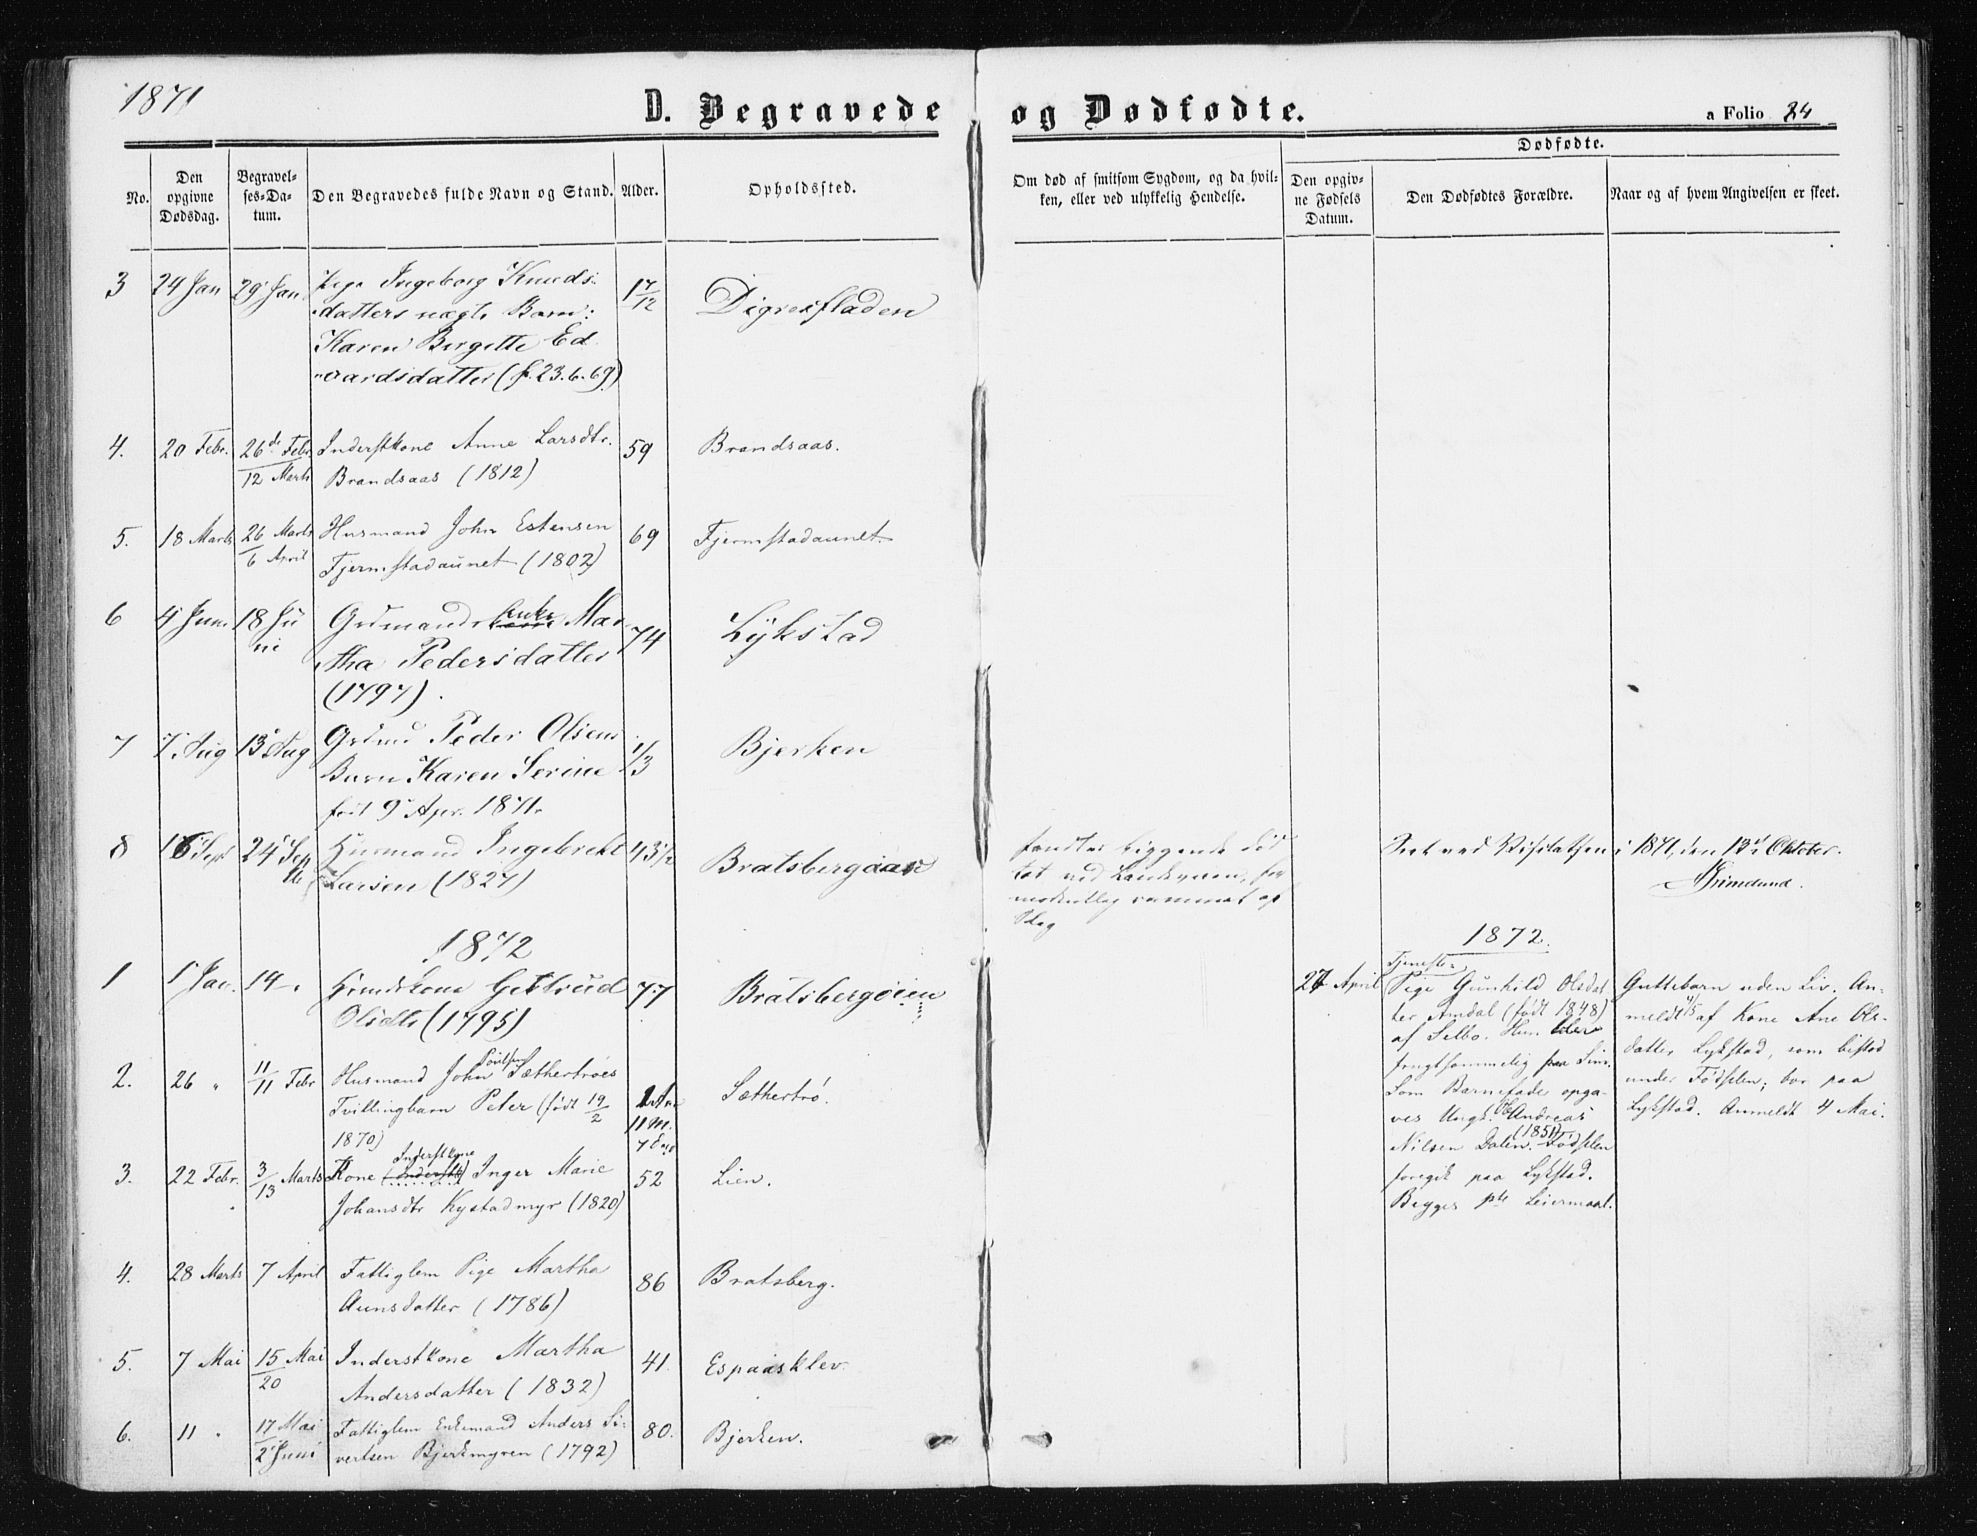 1871
D. Begravede og Dødfødte.
a Folio 24
No.
Den opgivne Dødsdag.
Begravelses-Datum.
Den Begravedes fulde Navn og Stand.
Alder.
Opholdssted.
Om død af smitsom Sygdom, og da hvilken, eller ved ulykkelig Hendelse.
Dødfødte.
Den opgivne Fødsels Datum.
Den Dødfødtes Forældre.
Naar og af hvem Angivelsen er skeet.
3 24 Jan 29 Jan Pige Ingeborg Knuds- 17/12 Digresfladen
datters uægte Barn:
Karen Birgitte Ed
vardsdatter (f. 23.6.69)
4. 20 Febr. 26de Febr 12 Marts Inderstkone Anne Larsdtr. 59 Brandsaas.
Brandsaas (1812)
5. 18 Marts 26 Marts 6 April Husmand John Estensen 69 Fjermstadaunet
Fjermstadaunet (1802)
6 4 Juni 18 Juni Grdmands Enke Mar 74 Lykstad
tha Pedersdatter
(1797).
7 7 Aug 13 Aug Grdmd Peder Olsens 1/3 Bjerken
Barn Karen Serine
født 9 Apr. 1871.
8 16 Sept 24 Sept Husmand Ingebrikt 43 1/2 Bratsbergøien
Larsen (1827)
fandtes liggende død
af
Slag
Seet ved Visitatsen i 1871, den 13de Oktober.
Grimelund.
1872
1 1 Jan. 14 Grmdskone Gertrud 77 Bratsbergøien
Olsdtr (1795)
2. 26 " 11/11 Febr Husmand John Povelsen Sæthertrøes Sæthertrø.
Tvillingbarn Peter (født 19/2 1 Aar
1870) 11 M.
3. 22 Febr. 3/13 Marts Kone Inderstkone Inger Marie 52 Lien.
Johansdtr Kystadmyr (1820)
4. 28 Marts 7 April Fattiglem Pige Martha 86 Bratsberg.
Aunsdatter (1786)
5. 7 Mai 15 Mai 20 Inderstkone Martha 41. Espaasklev.
Andersdatter (1832)
6. 11 " 17 Mai 2 Juni Fattiglem Enkemand Anders Si- 80. Bjerken.
vertsen Bjerkmyren (1792)
1872.
27 April Tjeneste-
Pige Gunhild Olsdat
ter Amdal (født 1848)
af Selbo. Hun blev
frugtsommelig paa
Som Barnefader opga-
ves Ungk. Ole Andreas
Nilsen Dalen (1851). Fødselen
foregik paa Lykstad.
Begges Leiermaal.
Guttebarn uden Liv. An-
meldt 4/5 af Kone Ane Ols-
datter Lykstad, som bistod
under Fødselen; bor paa
Lykstad. Anmeldt 4 Mai.